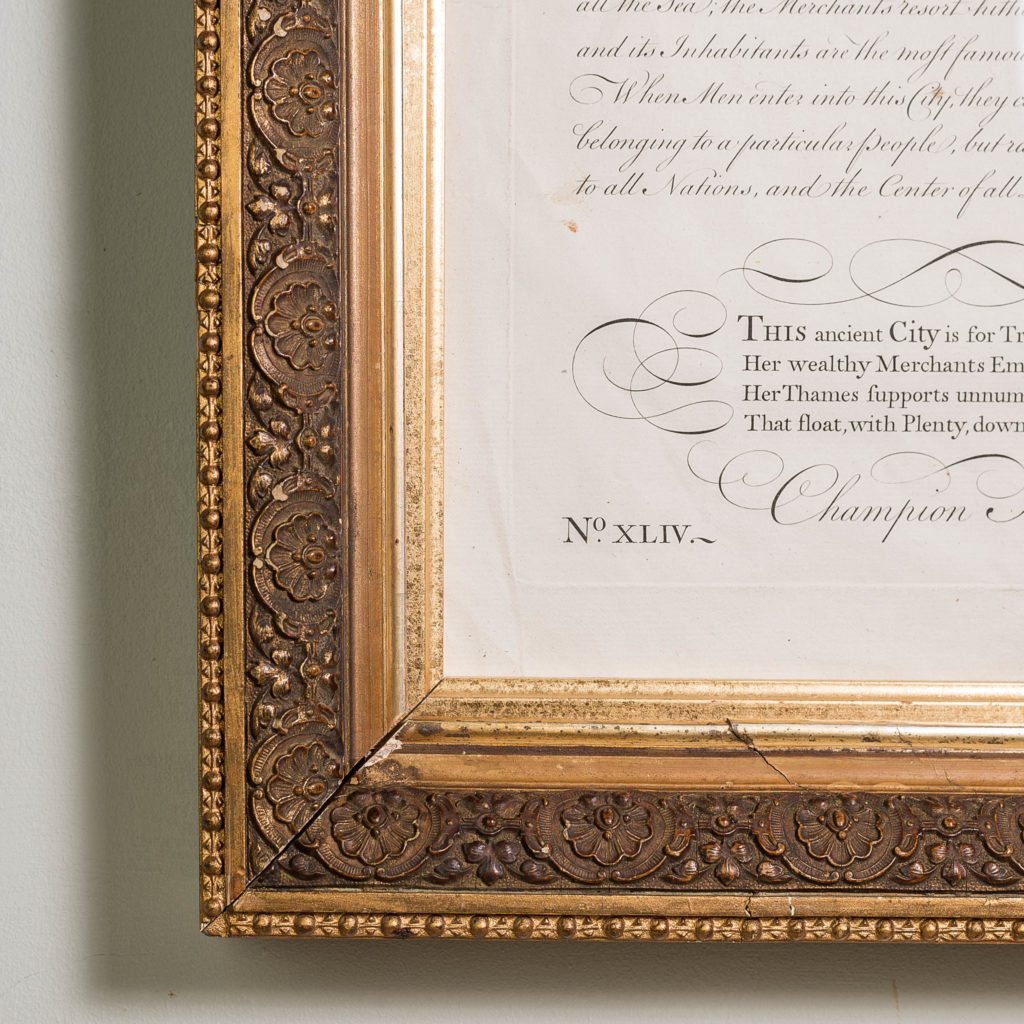 all the Sea; the Merchants resort
and its Inhabitants are the most
When Men enter into this City, they
belonging to a particular people, but
to all Nations, and the Center of all
THIS ancient City is for
Her wealthy Merchants
Her Thames ſupports
That float, with Plenty, down
Champion
No. XLIV.~